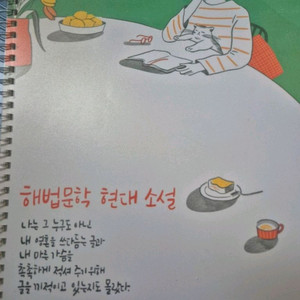 해법문학 현대 소설
나는 그 누구도 아닌
내 영혼을 쓰다듬는 글과
내 마른 가슴을
촉촉하게 적셔 주기 위해
글을 끼적이고 있는지도 몰랐다